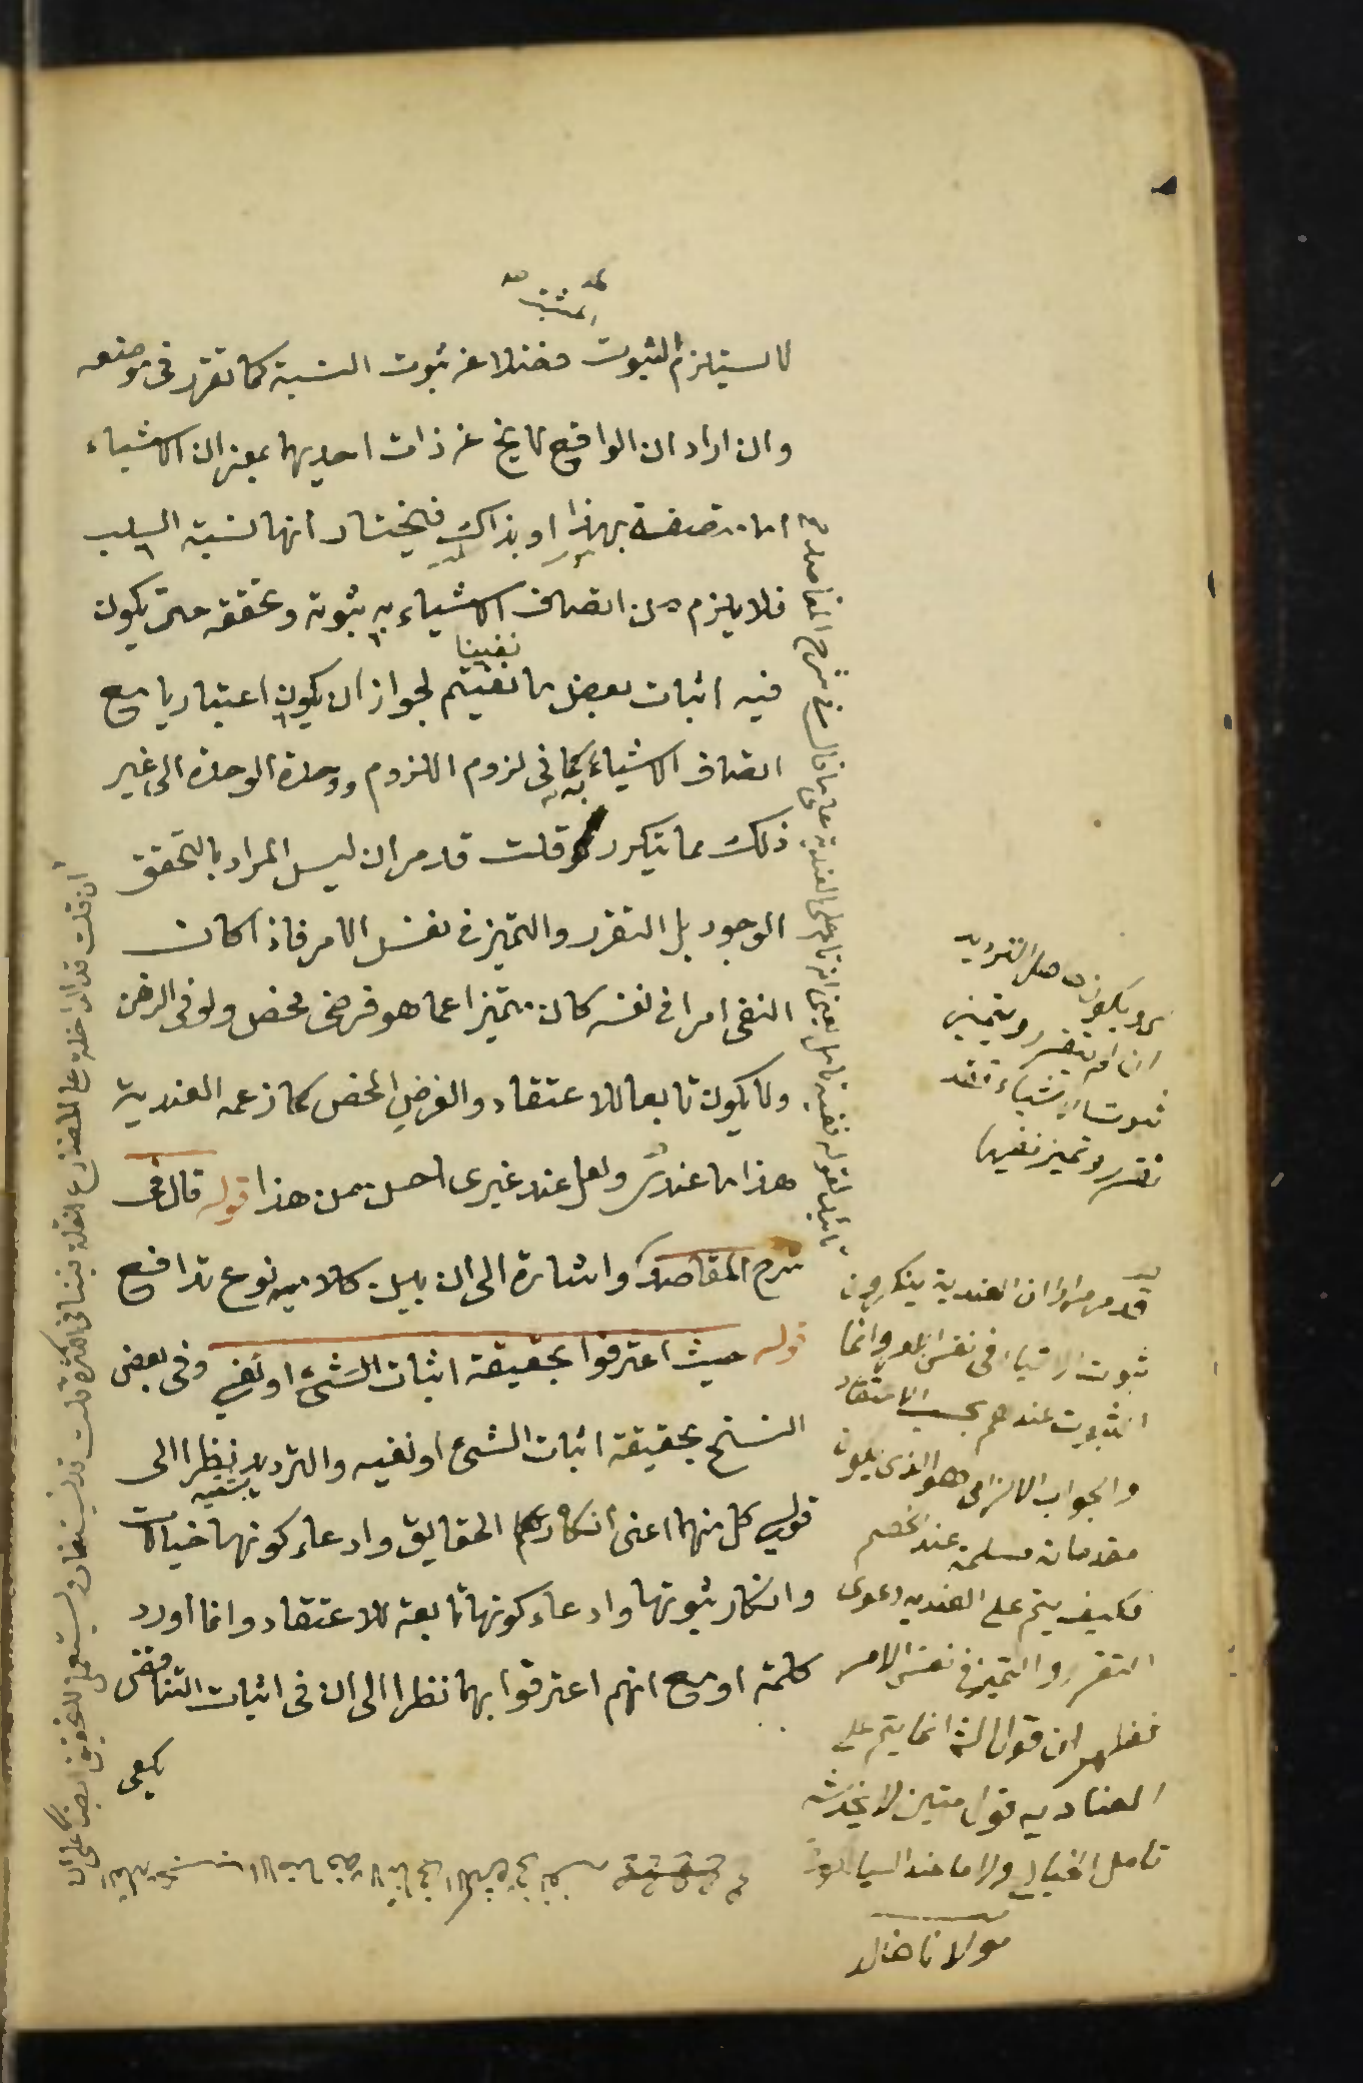 لا يستلزم الثبوت فضلا عن ثبوت النسبة كما تقرر في موضعه
وان اراد ان الواقع لا يخ عن ذات احديهما بمعنى ان الاشياء
اما متصفة بهذا او بذاك فيختار انها نسبة السلب
فلا يلزم من اتصاف الاشياء به ثبوته وتحققه حتى يكون
نفينا
فيه اثبات بعض ما نفيتم لجواز ان يكون اعتباريا مع
اتصاف الاشياء به كما في لزوم اللزوم ووحدة الوحدة الى غير
ذلك مما يتكرر قلت قد مر ان ليس المراد بالتحقق
الوجود بل التقرر والتميز في نفس الامر فاذا كان
النفى امرا في نفسه كان متميزا عما هو فرضى محض ولو في الذهن
ولا يكون تابعا للاعتقاد والفرض المحض كما زعمه العندية
هذا ما عندى ولعل عند غيرى احسن من هذا قوله قال في
شرح المقاصد واشارة الى ان بين كلاميه نوع تدافع
قوله حيث اعترفوا بحقيقة اثبات الشئ او نفيه وفى بعض
النسخ بحقيقة اثبات الشئ او نفيه والترديد نظرا الى
قولى كل منهما اعنى انكارهم الحقايق وادعاء كونها خيالات
وانكار ثبوتها وادعاء كونها تابعة للاعتقاد وانما اورد
كلمة او مع انهم اعترفوا بهما نظرا الى ان في اثبات التناقض
يكفى
ويكون حاصل الترديد
ان لم يتقرر ويتميز
ثبوت الاشياء فقد
تقرر وتميز نفيها
قد مر مرارا ان العندية ينكرون
ثبوت الاشياء في نفس الامر وانما
الثبوت عندهم بحسب الاعتقاد
والجواب الالزامى هو الذى يكون
مقدماته مسلمة عند الخصم
فكيف يتم على العنديه دعوى
التقرر والتميز في نفس الامر
فظهر ان قول الش انما يتم على
العناديه قول متين لا يخدشه
تامل الخيالى ولا ما عند السيالكوتى
مولانا خالد